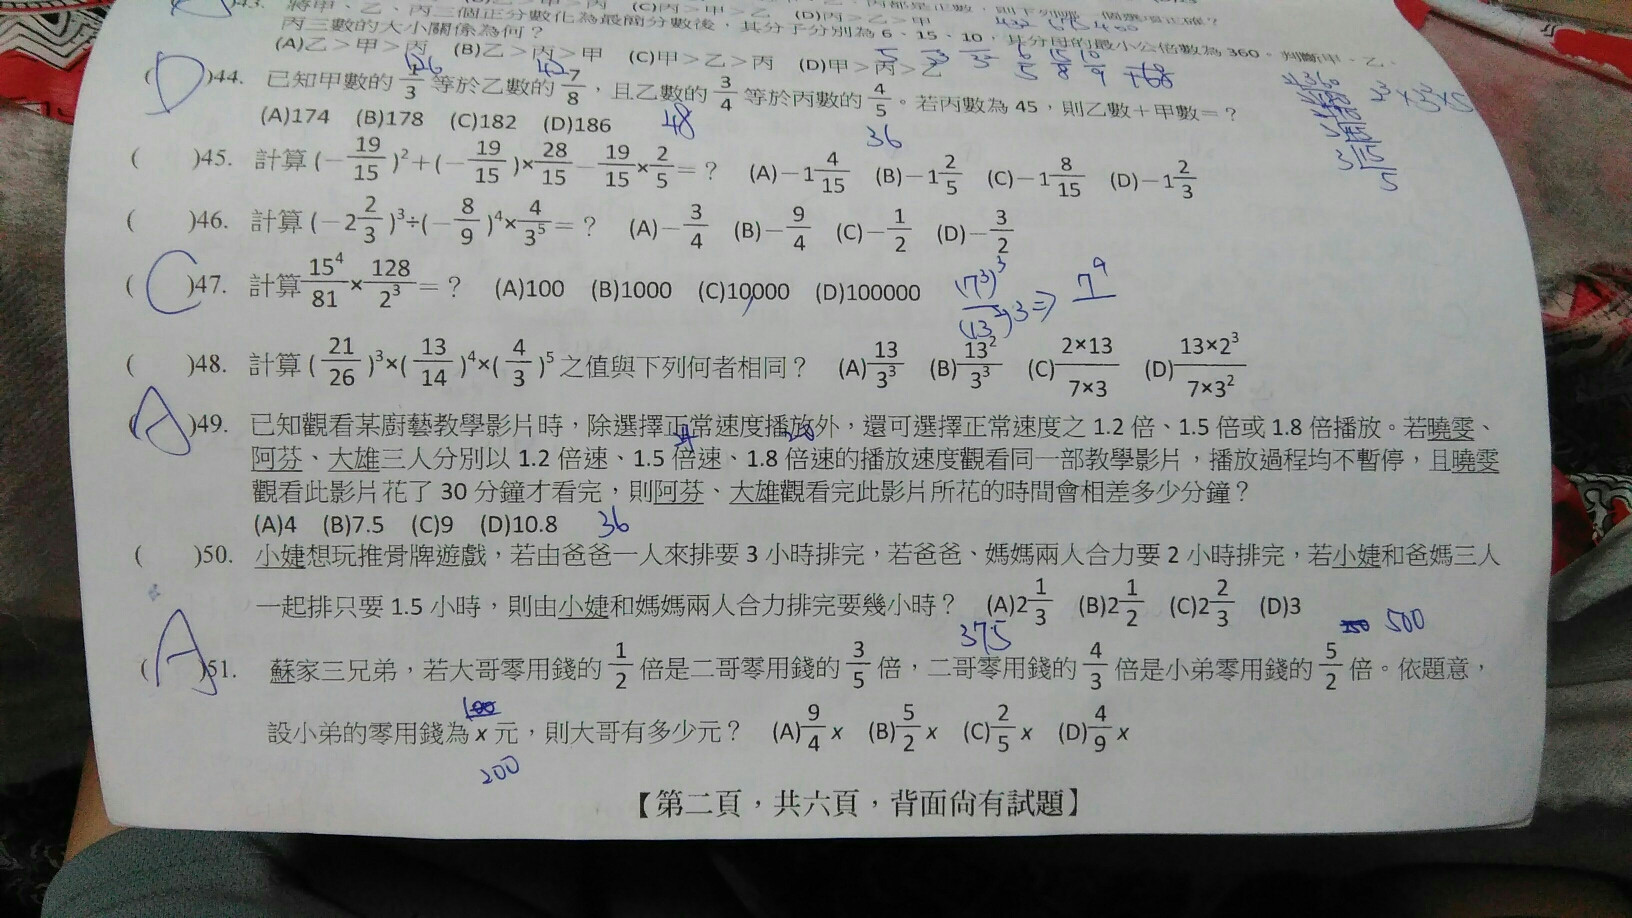 43. 將甲、乙、丙三個正分數化為最簡分數後，其分子分別為 6、15、10，其分母的最小公倍數為 360。判斷甲、乙、
丙三數的大小關係為何？
(A)乙＞甲＞丙 (B)乙＞丙＞甲 (C)甲＞乙＞丙 (D)甲＞丙＞乙
(D)44. 已知甲數的 1/3 等於乙數的 7/8，且乙數的 3/4 等於丙數的 4/5。若丙數為 45，則乙數＋甲數＝？
126 42
(A)174 (B)178 (C)182 (D)186 48 36
( )45. 計算 (－19/15)²＋(－19/15)×28/15－19/15×2/5＝？ (A)－1 4/15 (B)－1 2/5 (C)－1 8/15 (D)－1 2/3
( )46. 計算 (－2 2/3)³÷(－8/9)⁴×4/3⁵＝？ (A)－3/4 (B)－9/4 (C)－1/2 (D)－3/2
(C)47. 計算 15⁴/81×128/2³＝？ (A)100 (B)1000 (C)10000 (D)100000
( )48. 計算 (21/26)³×(13/14)⁴×(4/3)⁵ 之值與下列何者相同？ (A)13/3³ (B)13²/3³ (C)2×13/7×3 (D)13×2³/7×3²
(A)49. 已知觀看某廚藝教學影片時，除選擇正常速度播放外，還可選擇正常速度之 1.2 倍、1.5 倍或 1.8 倍播放。若曉雯、
阿芬、大雄三人分別以 1.2 倍速、1.5 倍速、1.8 倍速的播放速度觀看同一部教學影片，播放過程均不暫停，且曉雯
觀看此影片花了 30 分鐘才看完，則阿芬、大雄觀看完此影片所花的時間會相差多少分鐘？
(A)4 (B)7.5 (C)9 (D)10.8 36
( )50. 小婕想玩推骨牌遊戲，若由爸爸一人來排要 3 小時排完，若爸爸、媽媽兩人合力要 2 小時排完，若小婕和爸媽三人
一起排只要 1.5 小時，則由小婕和媽媽兩人合力排完要幾小時？ (A)2 1/3 (B)2 1/2 (C)2 2/3 (D)3
375 500
(A)51. 蘇家三兄弟，若大哥零用錢的 1/2 倍是二哥零用錢的 3/5 倍，二哥零用錢的 4/3 倍是小弟零用錢的 5/2 倍。依題意，
設小弟的零用錢為 x 元，則大哥有多少元？ (A)9/4 x (B)5/2 x (C)2/5 x (D)4/9 x
200
【第二頁，共六頁，背面尚有試題】